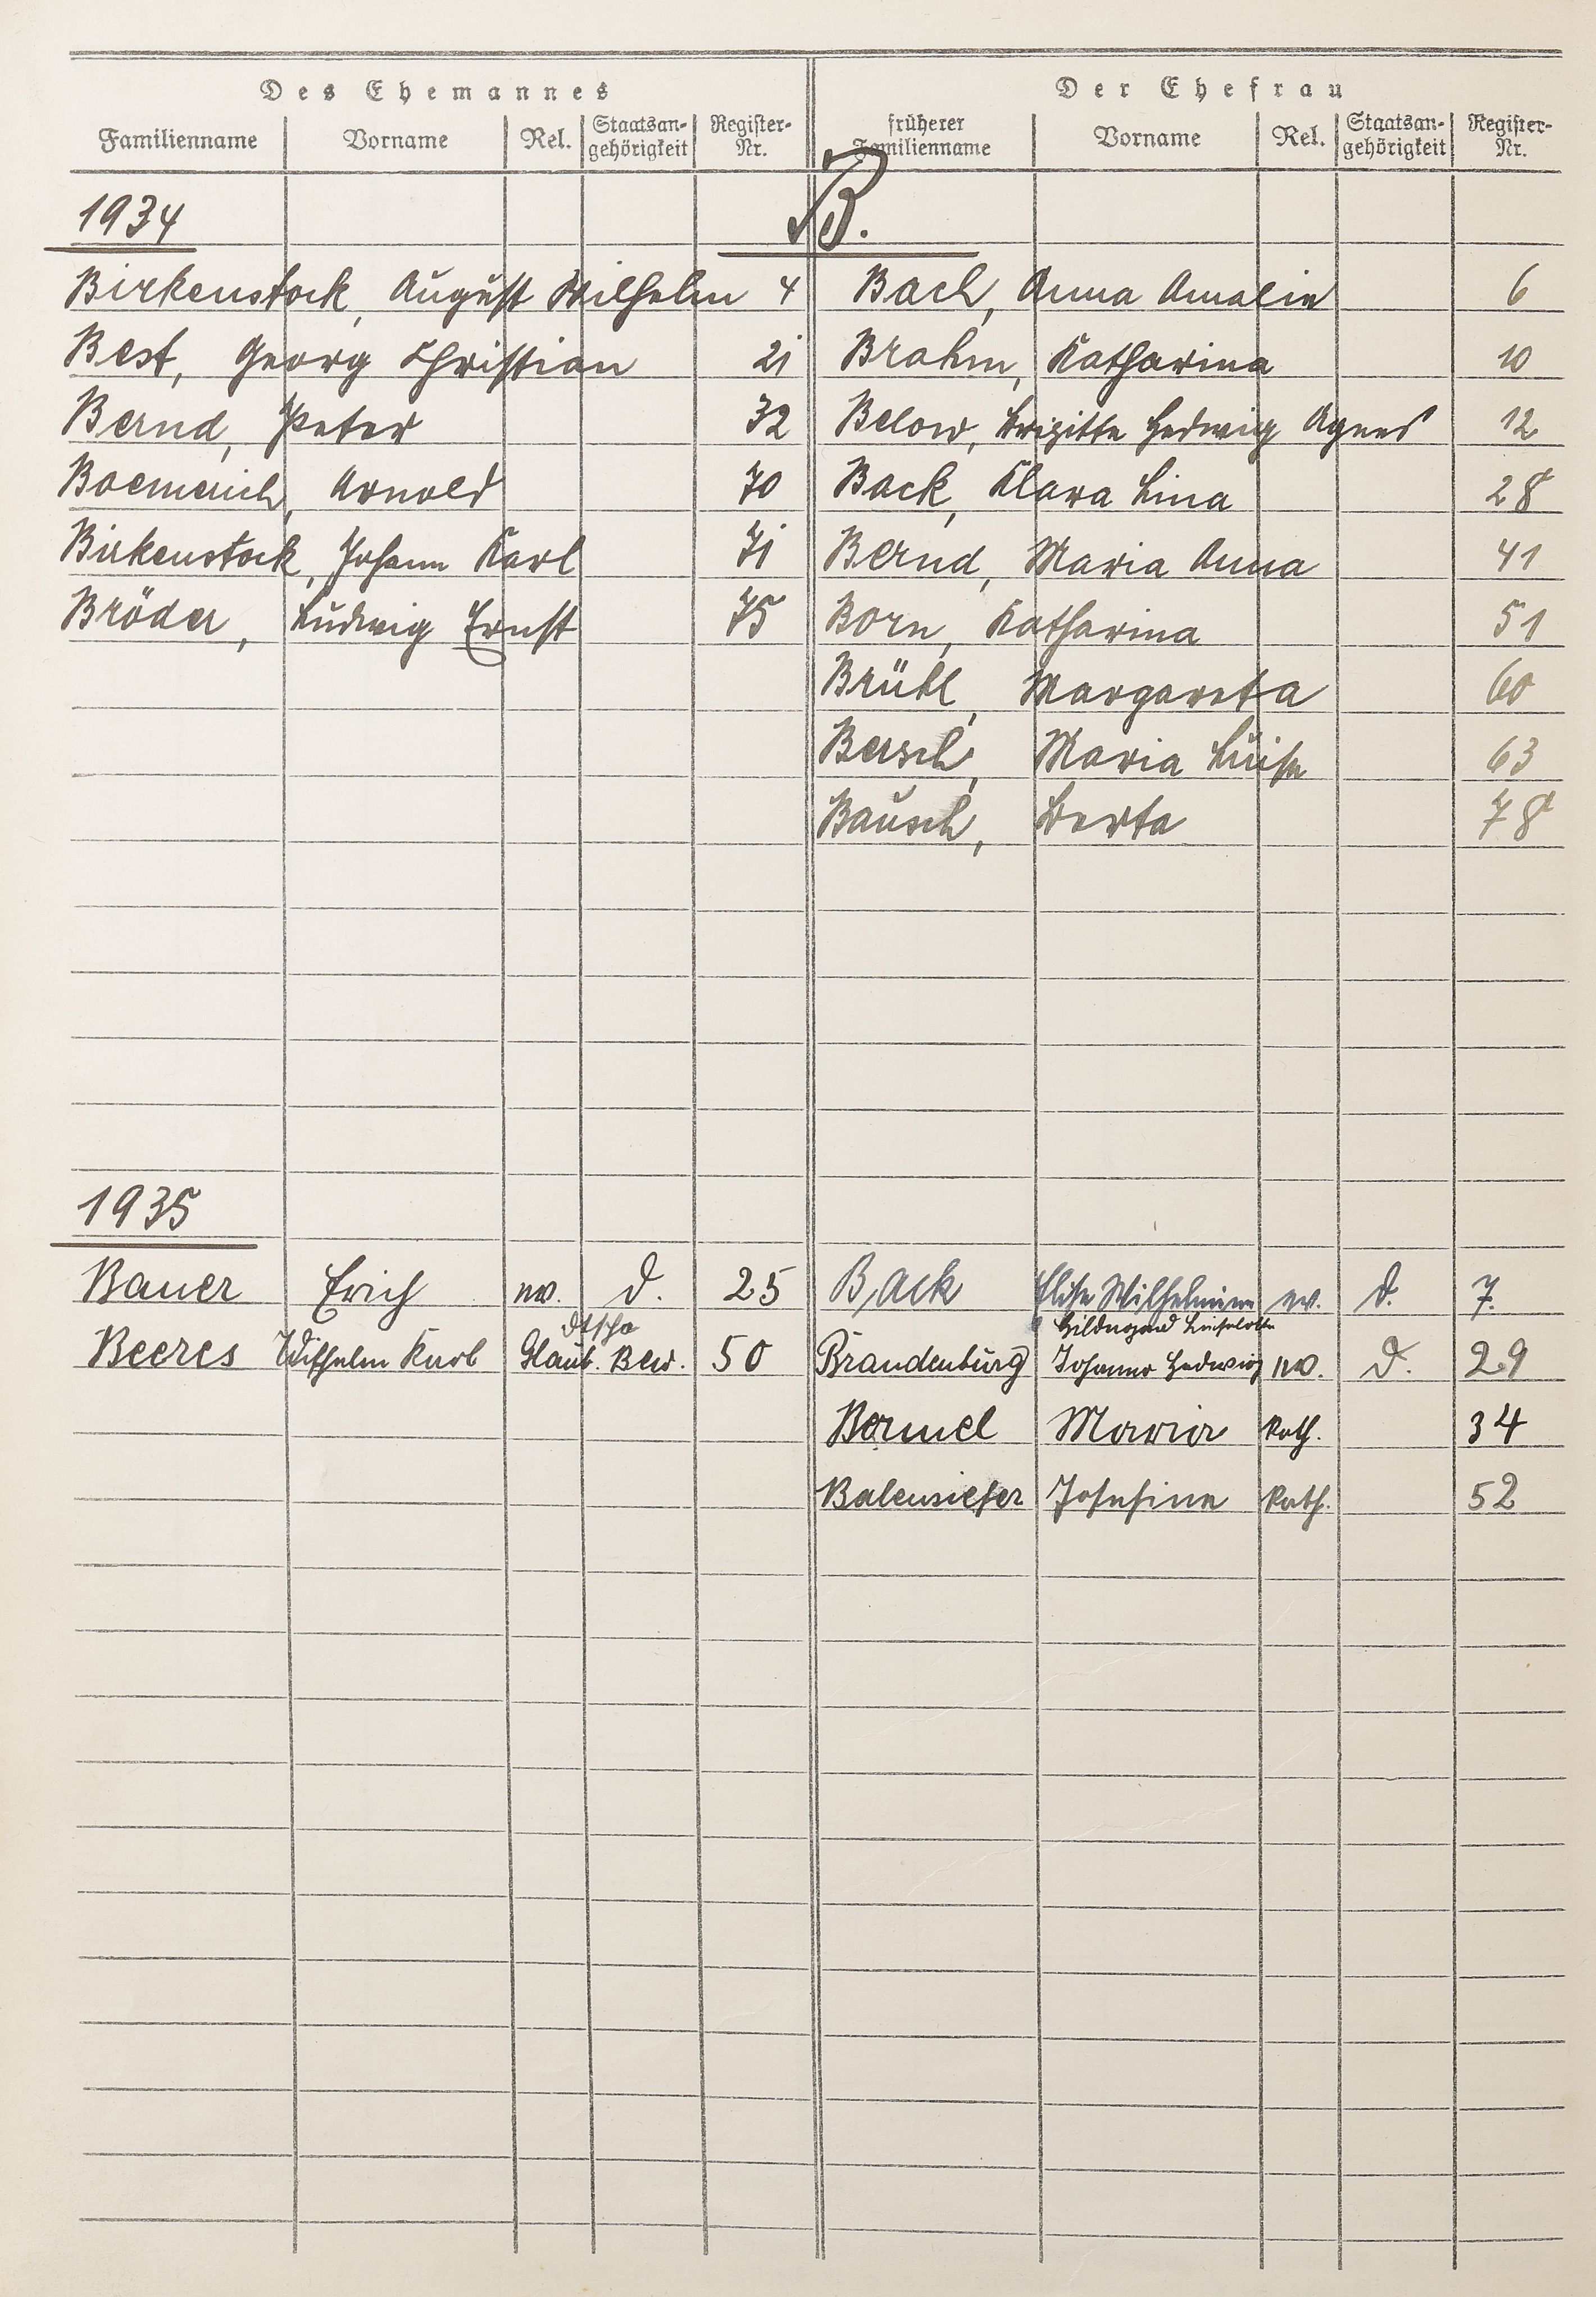 Des Ehemannes Der Ehefrau
Familienname Vorname Rel. Staatsan-gehörigkeit Register-Nr. früherer Familienname Vorname Rel. Staatsan-gehörigkeit Register-Nr.
1934 B.
Birkenstock, August Wilhelm 4 Bach, Anna Amalie 6
Best, Georg Christian 21 Brahm, Katharina 10
Bernd, Peter 32 Below, Brigitte Hedwig Agnes 12
Boemerich, Arnold 70 Back, Klara Lina 28
Birkenstock, Johann Karl 71 Bernd, Maria Anna 41
Bröder, Ludwig Ernst 75 Born, Katharina 51
Brühl, Margareta 60
Bersch, Maria Luise 63
Bausch, Berta 78
1935
Bauer Erich ev. d. 25 Back Elise Wilhelmine ev. d. 7.
dtsche Hildegard Liselotte
Beeres Wilhelm Karl Glaub. Bew. 50 Brandenburg Johanna Hedwig ev. d. 29
Bermel Maria kath. 34
Balensiefer Josefine kath. 52